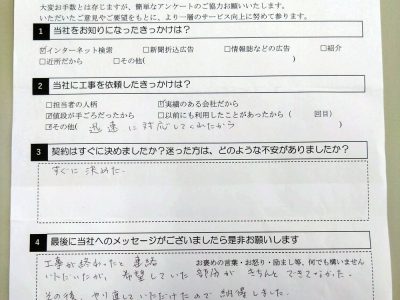 大変お手数とは存じますが、簡単なアンケートのご協力お願いします。
いただいたご意見やご要望をもとに、より一層のサービス向上に努めて参ります。
1 当社をお知りになったきっかけは?
☑インターネット検索 □新聞折込広告 □情報誌などの広告 □紹介
□近所だから □その他( )
2 当社に工事を依頼したきっかけは?
□担当者の人柄 ☑実績のある会社だから
☑値段が手ごろだったから □以前にも利用したことがあったから( 回目)
☑その他( 迅速に対応してくれたから )
3 契約はすぐに決めましたか?迷った方は、どのような不安がありましたか?
すぐに決めた.
4 最後に当社へのメッセージがございましたら是非お願いします
お褒めの言葉・お怒り・励まし等、何でも構いません
工事が終わったと連絡
いただいたが、希望していた部分がきちんとできてなかった.
その後、やり直していただけたので納得しました.